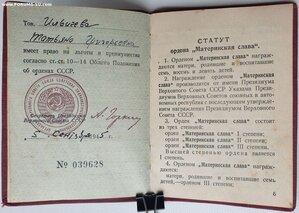 Тов.
Татьяна Григорьевна
имеет право на льготы и преимущества
согласно ст. ст. 10—14 Общего Положения
об орденах СССР.
5 сентября
№ 039628
СТАТУТ
ордена „Материнская слава“.
1. Орденом „Материнская слава“
награждаются матери, родившие и воспитавшие семь,
восемь и девять детей.
2. Награждение орденом „Материнская слава“
производится от имени Президиума
Верховного Совета СССР Указами Президиумов
Верховных Советов союзных и автономных
республик с последующим утверждением
награждения Президиумом
Верховного Совета СССР.
3. Орден „Материнская слава“ состоит
из трёх степеней:
орден „Материнская слава“ I степени;
орден „Материнская слава“ II степени;
орден „Материнская слава“ III степени.
Высшей степенью ордена является
I степень.
4. Орденом „Материнская слава“
награждаются:
матери, родившие и воспитавшие семь
детей,—орденом III степени;
6